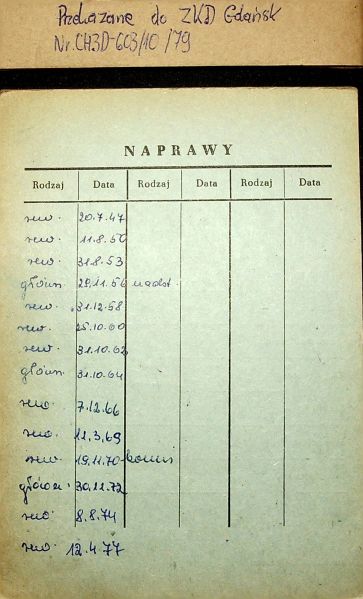 Przekazane do ZKD Gdańsk
Nr. CH3D-603/10/79
NAPRAWY
Rodzaj Data Rodzaj Data Rodzaj Data
rew. 20.7.47
rew. 11.8.50
rew. 31.8.53
główn. 29.11.56 nadst.
rew. 31.12.58
rew. 25.10.60
rew. 31.10.62
główn. 31.10.64
rew 7.12.66
rew. 11.3.69
rew. 19.11.70
główn. 30.11.72
rew 8.8.74
rew 12.4.77